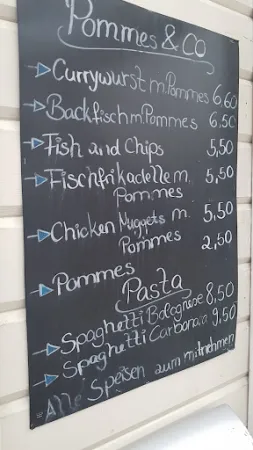 Pommes & Co
Currywurst m. Pommes 6,60
Backfisch m. Pommes 6.50
Fish and Chips 5,50
Fischfrikadelle m. 5,50
Pommes
Chicken Nuggets m. 5,50
Pommes
Pommes 2,50
Pasta
Spaghetti Bolognese 8,50
Spaghetti Carbonara 9,50
Alle Speisen zum mitnehmen